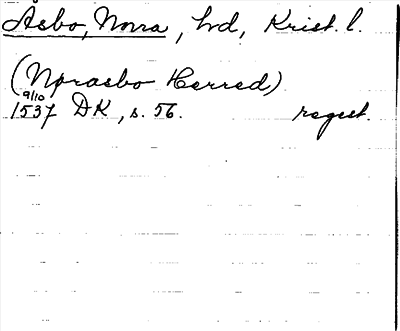 Åsbo, Norra, hd, Krist. l.
(Nprasbo Herred)
9/10
1537 DK, s. 56. regest.